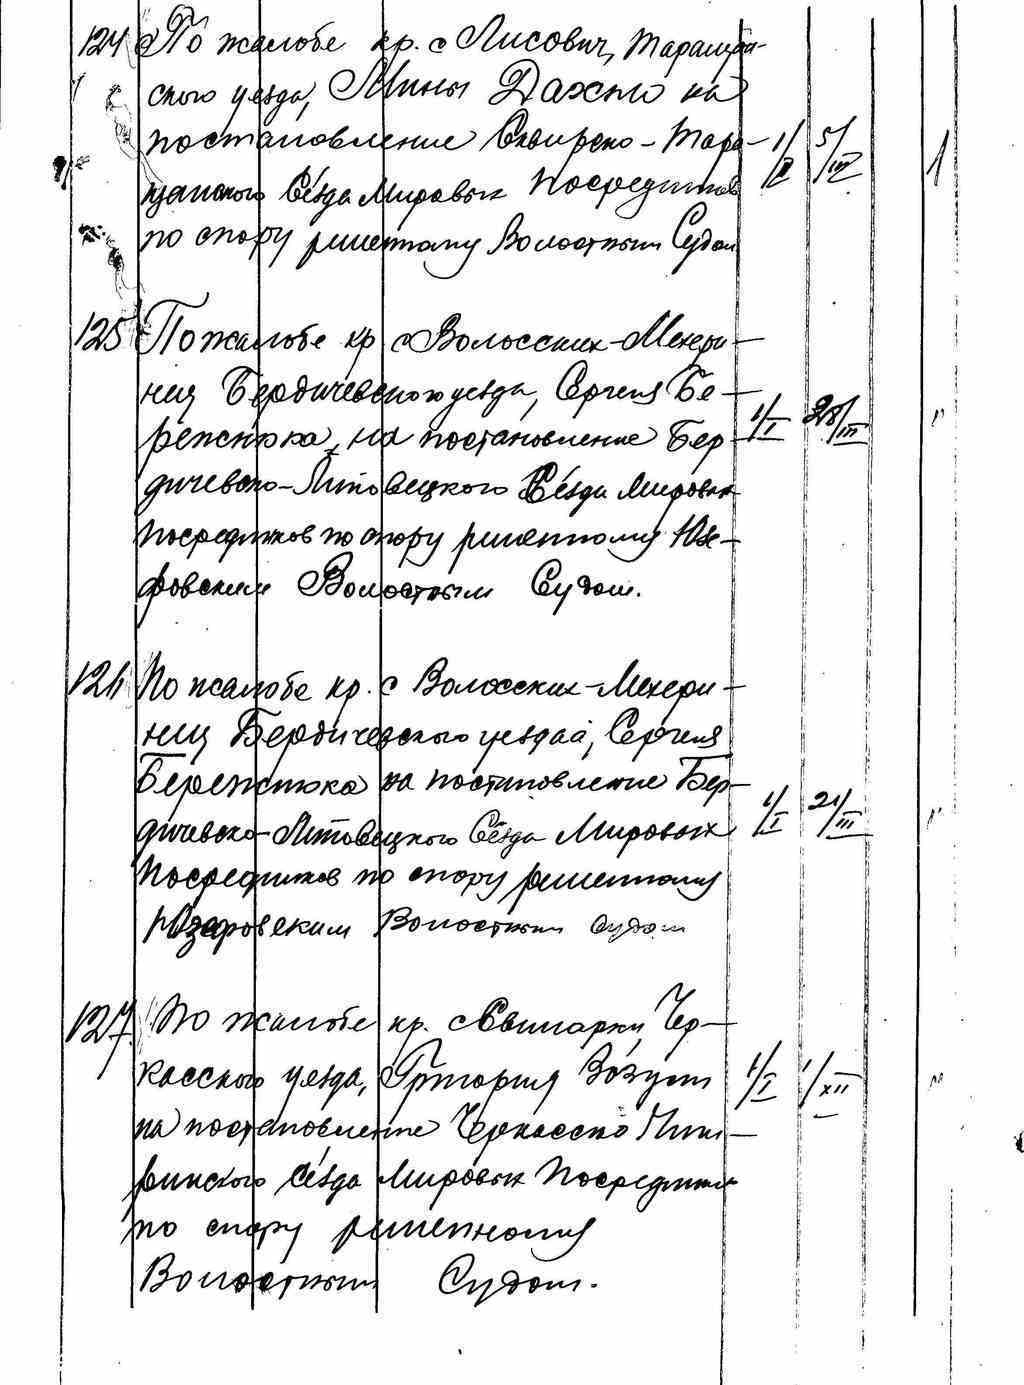 124 По жалобе кр. с Лисович, Таращан-
ского уезда, Мины Дахно на
постановление Сквирско-Тара-
щанского Съезда Мировых Посредников
по спору решенному Волостным Судом
1/II 5/III 1
125 По жалобе кр с Волосских-Мехери-
нец Бердичевского уезда, Сергея Бе-
режнюка, на постановление Бер-
дичевско-Липовецкого Съезда Мировых
Посредников по спору решенному Юз-
фовским Волостным Судом.
1/I 28/III "
126 По жалобе кр. с Волосских-Мехери-
нец Бердичевского уезда, Сергея
Бережнюка на постановление Бер-
дичевско-Липовецкого Съезда Мировых
Посредников по спору решенному
Юзефовским Волостным Судом
1/I 21/III "
127 По жалобе кр. с Свинарки, Чер-
касского уезда, Григория Возули
на постановление Черкасско Чиги-
ринского Съезда Мировых Посредников
по спору решенному
Волостным Судом.
1/I 1/XII "